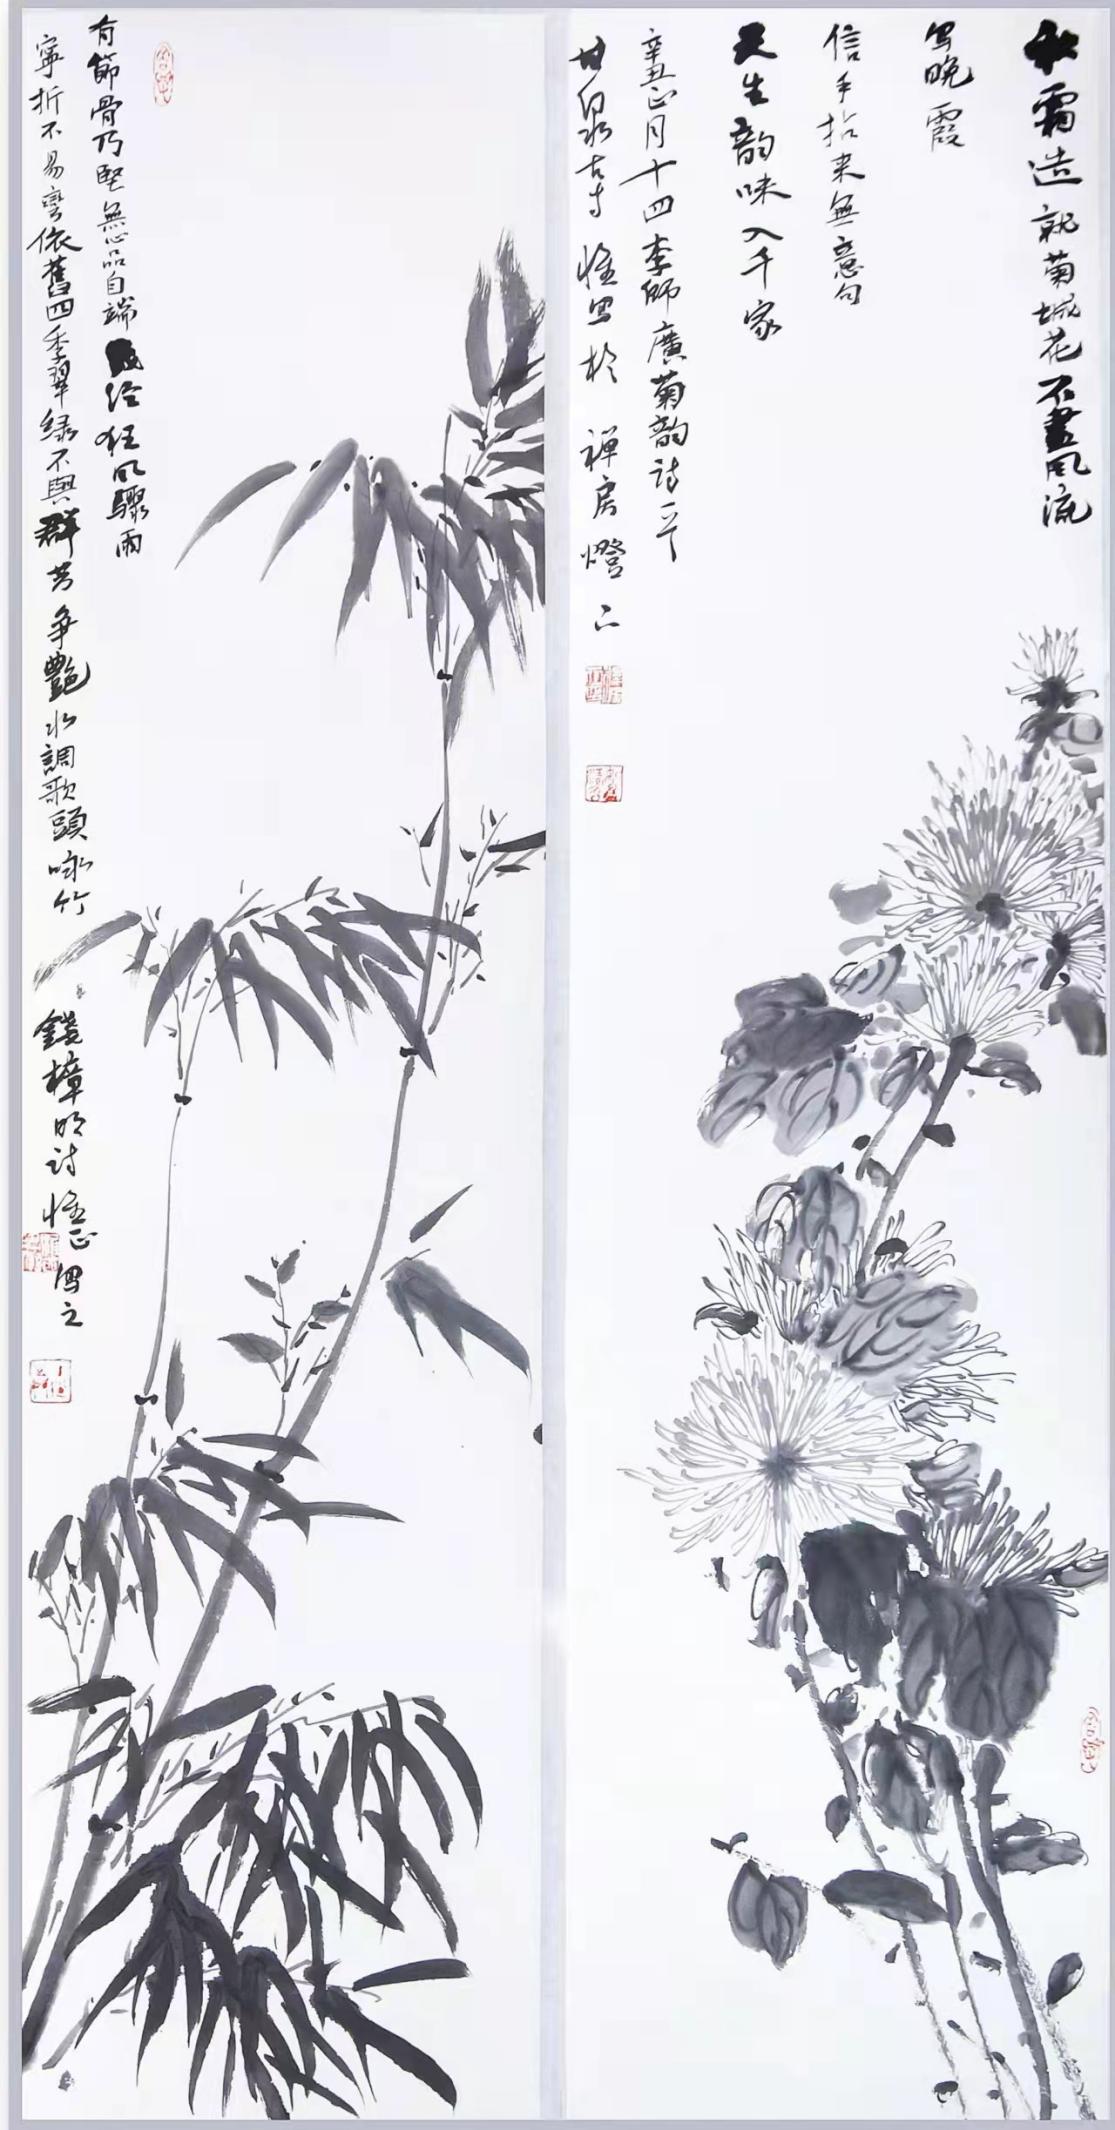 秋霜造就菊城花不盡風流
写晚霞
信手拈来無意句
天生韵味入千家
辛丑正月十四李師廣菊韵詩一首
甘泉古寺惟写於禅房燈下
有節骨乃堅無心品自端經狂風驟雨
寧折不易彎依舊四季翠緑不與群芳争艷水調歌頭咏竹
錢樟明詩惟正写之